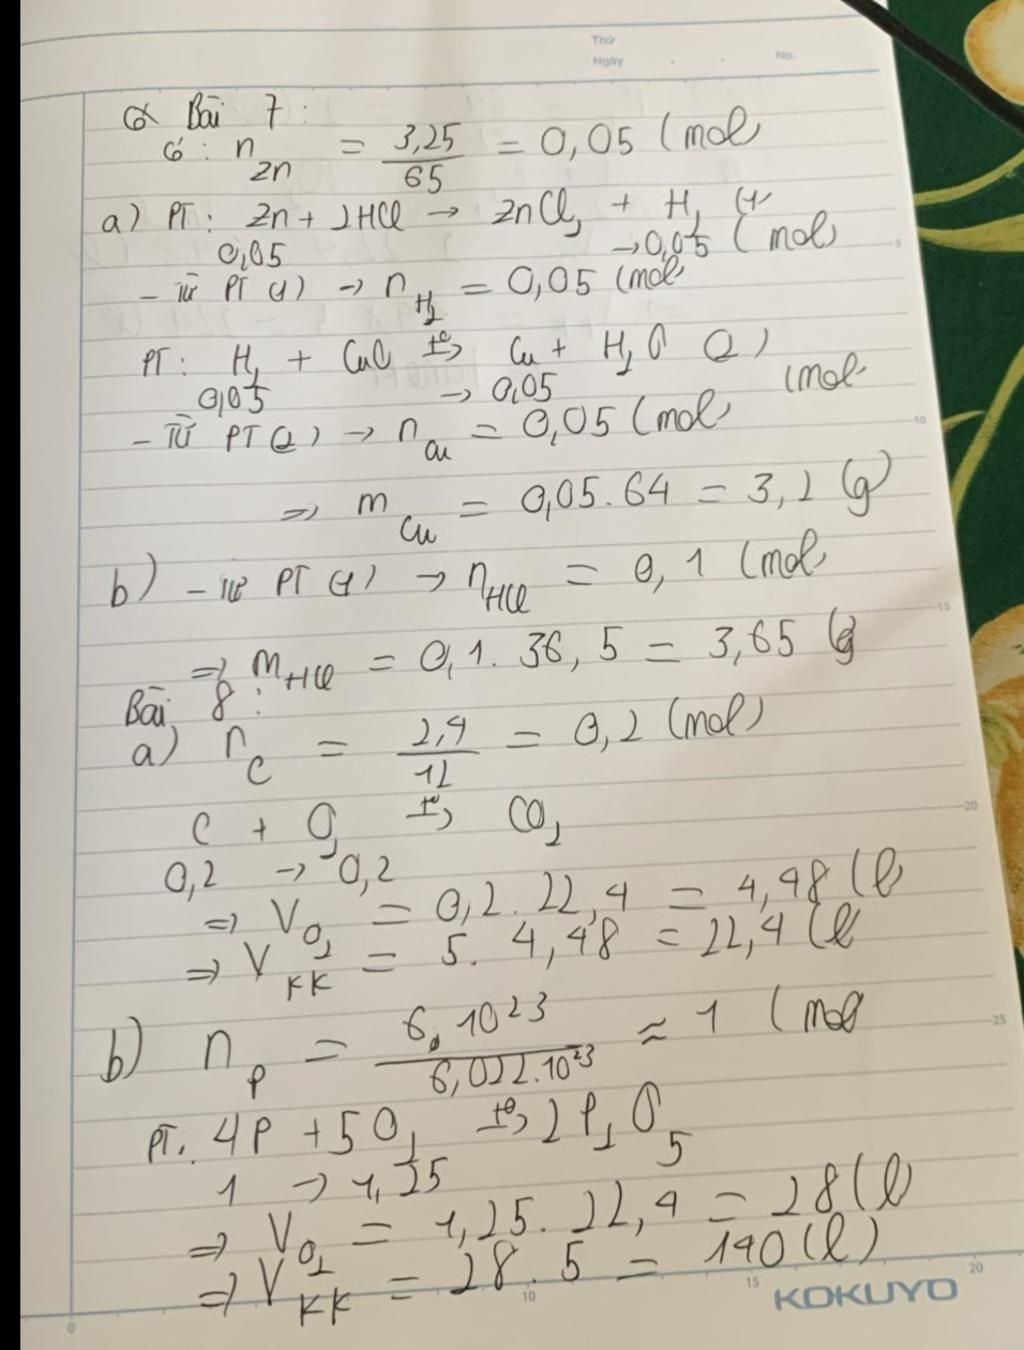 Thứ
Ngày . . No.
Bài 7 :
Có : n Zn = 3,25/65 = 0,05 (mol)
a) PT : Zn + 2HCl → ZnCl2 + H2 (1)
0,05 → 0,05 (mol)
- Từ PT (1) → n H2 = 0,05 (mol)
PT : H2 + CuO t°→ Cu + H2O (2)
0,05 → 0,05 (mol)
- Từ PT (2) → n Cu = 0,05 (mol)
=> m Cu = 0,05 . 64 = 3,2 (g)
b) - Từ PT (1) → n HCl = 0,1 (mol)
=> m HCl = 0,1 . 36,5 = 3,65 (g)
Bài 8 :
a) n C = 2,4/12 = 0,2 (mol)
C + O2 t°→ CO2
0,2 → 0,2
=> V O2 = 0,2 . 22,4 = 4,48 (l)
=> V KK = 5 . 4,48 = 22,4 (l)
b) n P = 6.10^23/6,022.10^23 ≈ 1 (mol)
PT : 4P + 5O2 t°→ 2P2O5
1 → 1,25
=> V O2 = 1,25 . 22,4 = 28 (l)
=> V KK = 28 . 5 = 140 (l)
5
10
15
20
25
0 10 15 20
KOKUYO